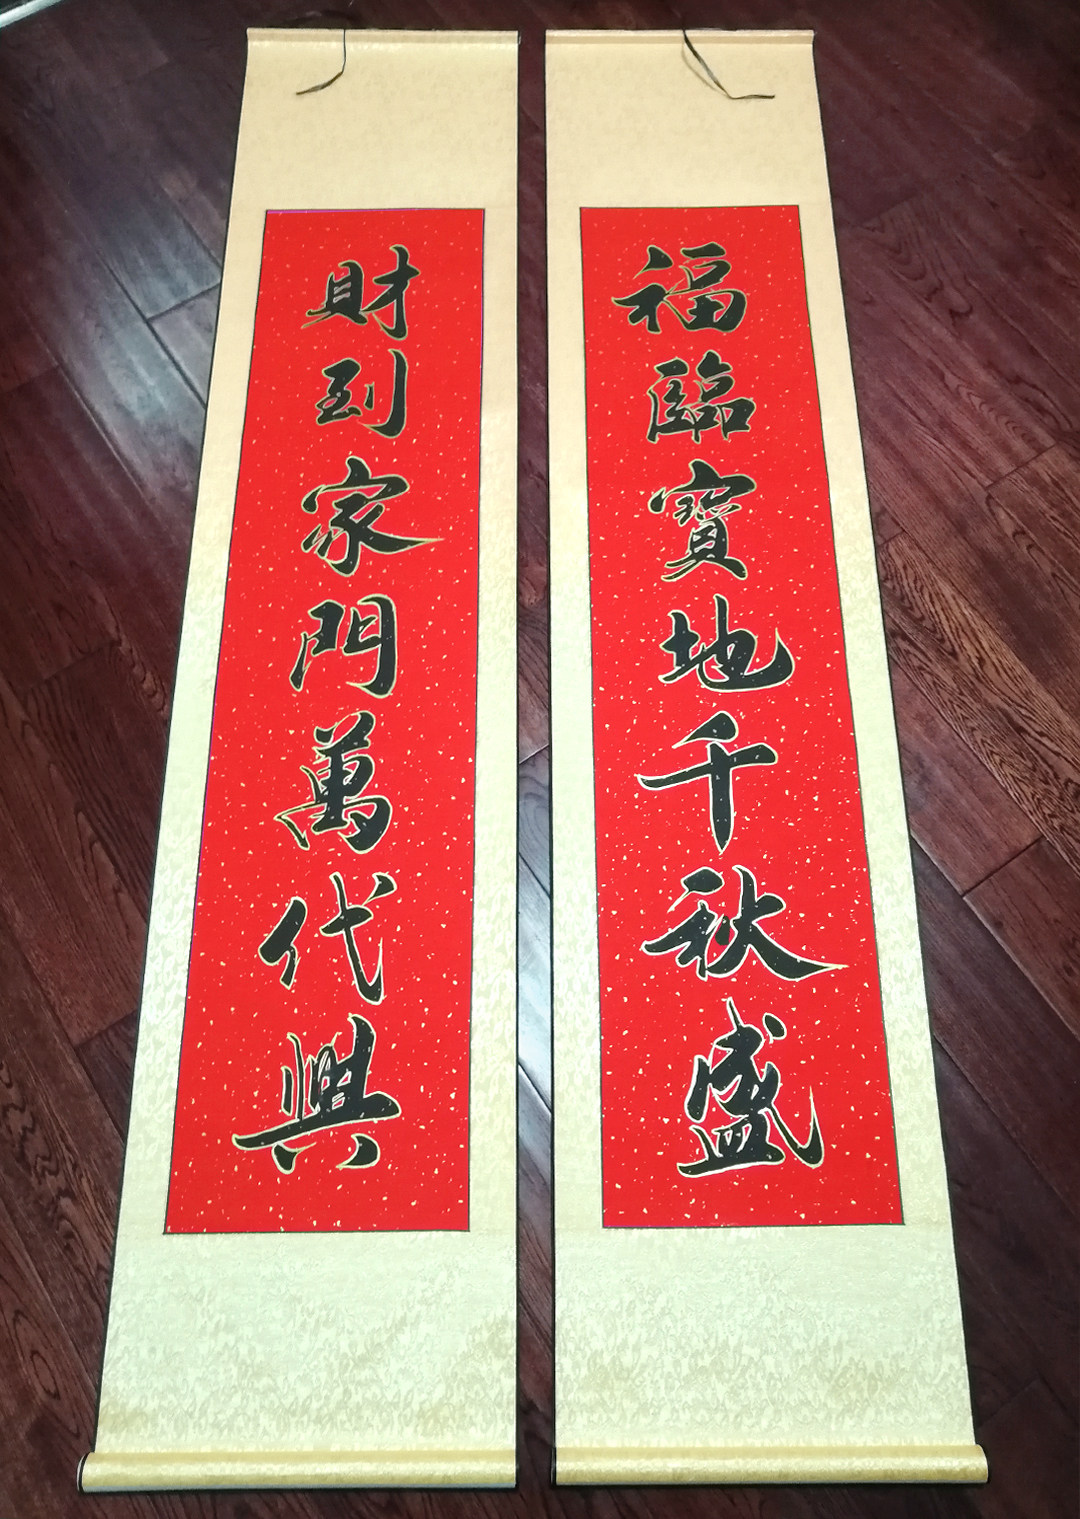 福臨寶地千秋盛
財到家門萬代興